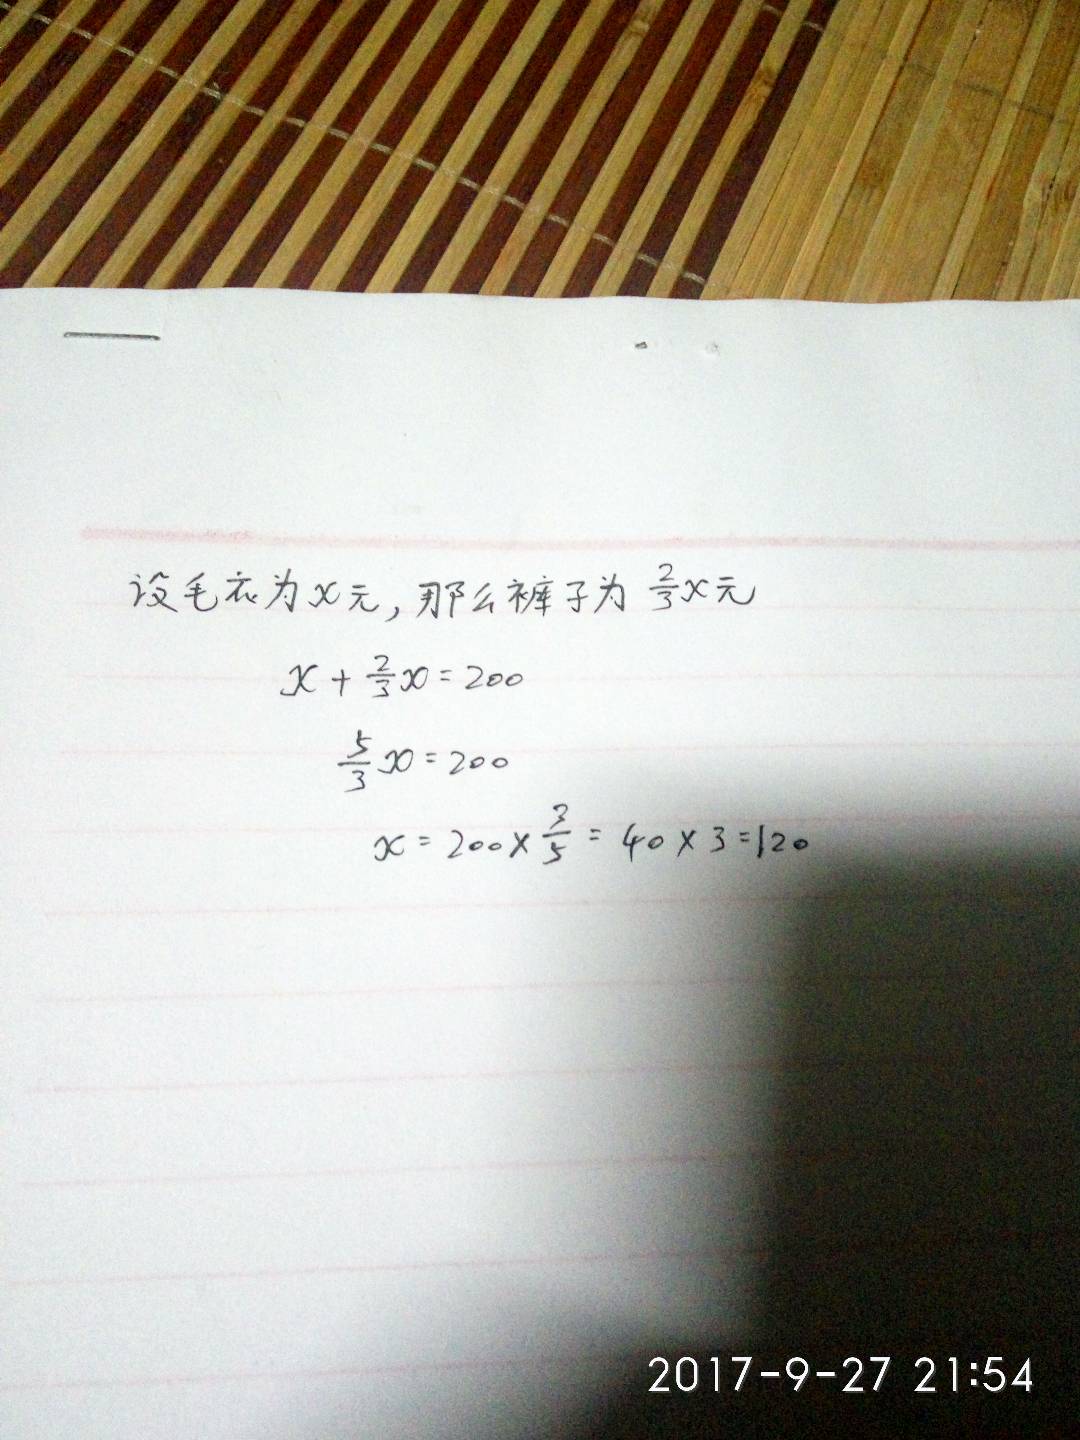 设毛衣为x元,那么裤子为 2/3 x元
x + 2/3 x = 200
5/3 x = 200
x = 200 × 3/5 = 40 × 3 = 120
2017-9-27 21:54